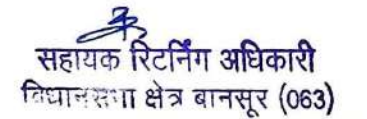 सहायक रिटर्निंग अधिकारी
विधानसभा क्षेत्र बानसूर (063)